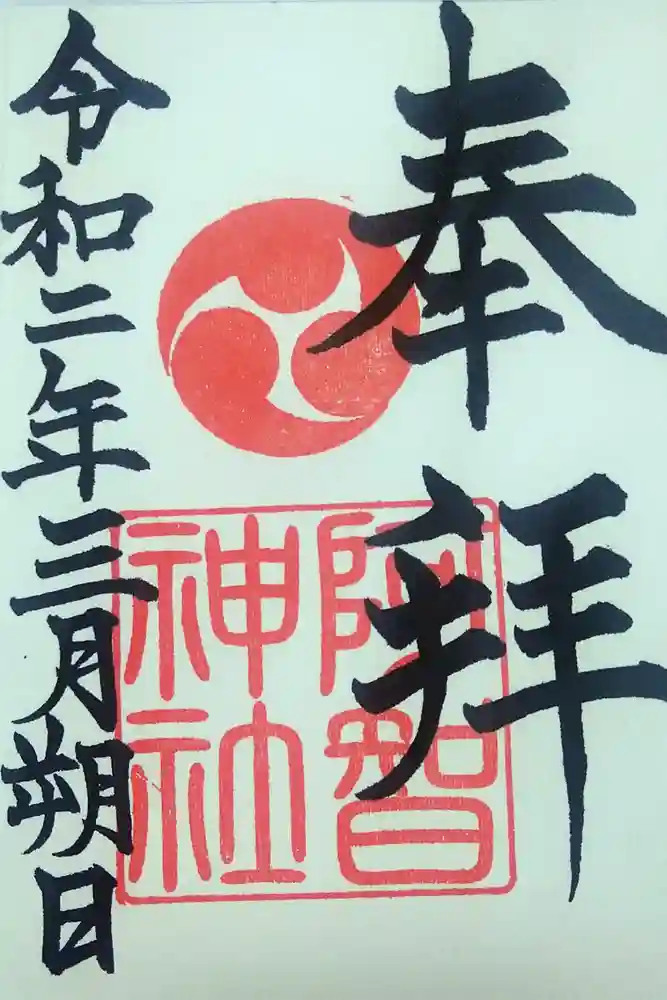 奉拝
阿智
神社
令和二年三月朔日